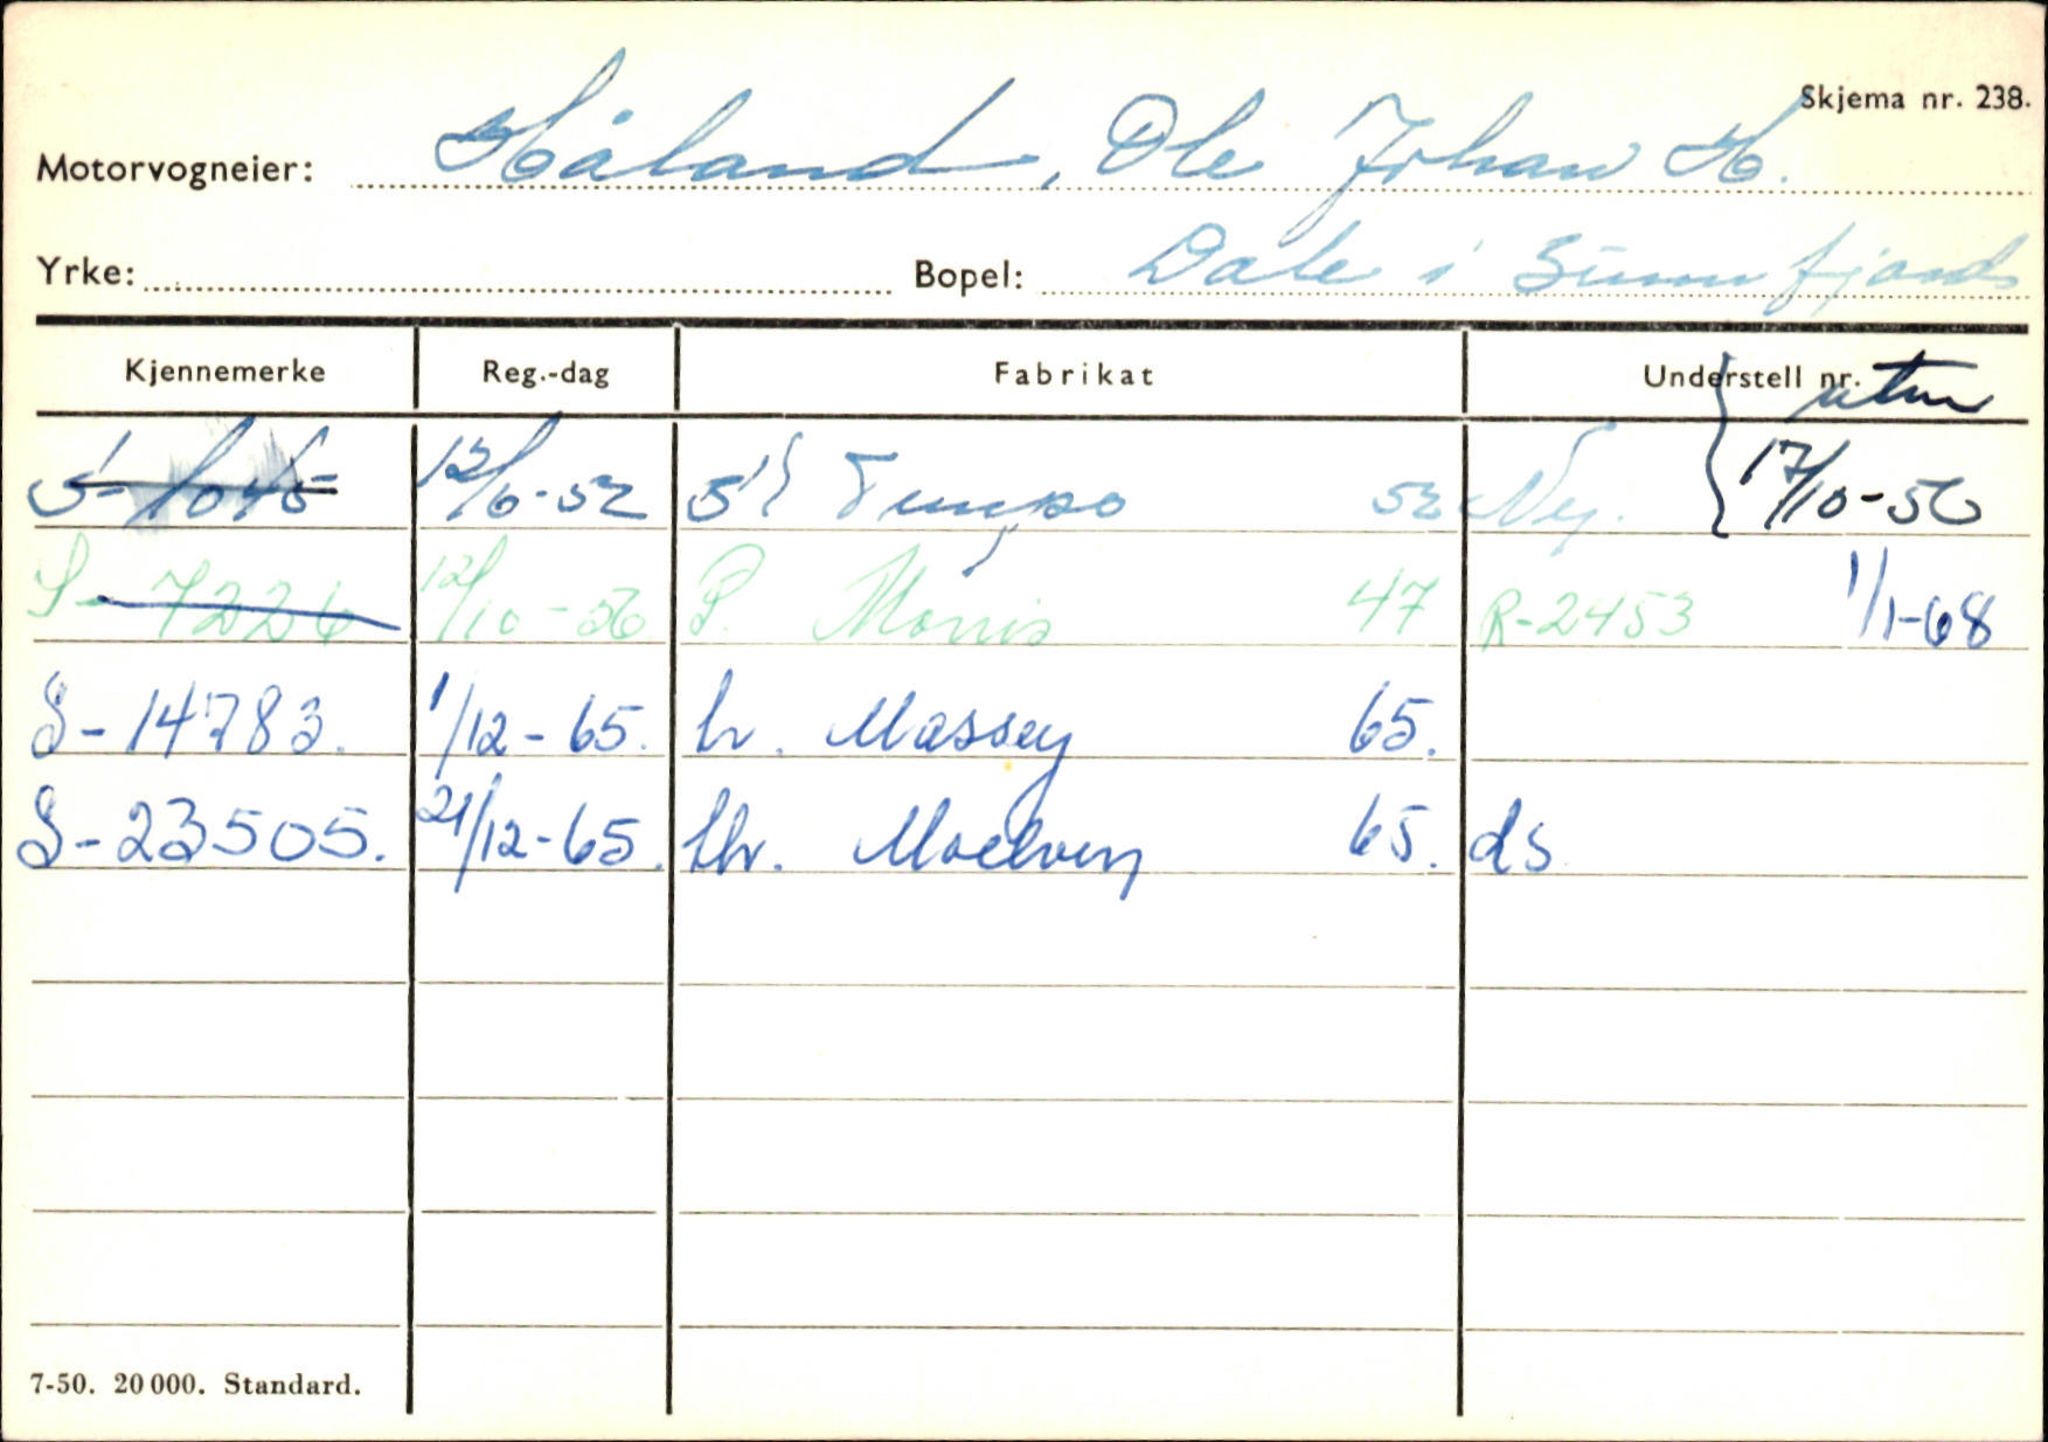 Skjema nr. 238.
Motorvogneier: Håland, Ole Johan H.
Yrke: Bopel: Dale i Sunnfjord
Kjennemerke Reg.-dag Fabrikat Understell nr. utm
S-1045 12/6-52 Tempo 52 Ny. 17/10-56
S-7226 12/10-56 P. Morris 47 R-2453 1/1-68
S-14783. 1/12-65. tr. Massey 65.
S-23505. 21/12-65. thr. Moelven 65. ds
7-50. 20 000. Standard.